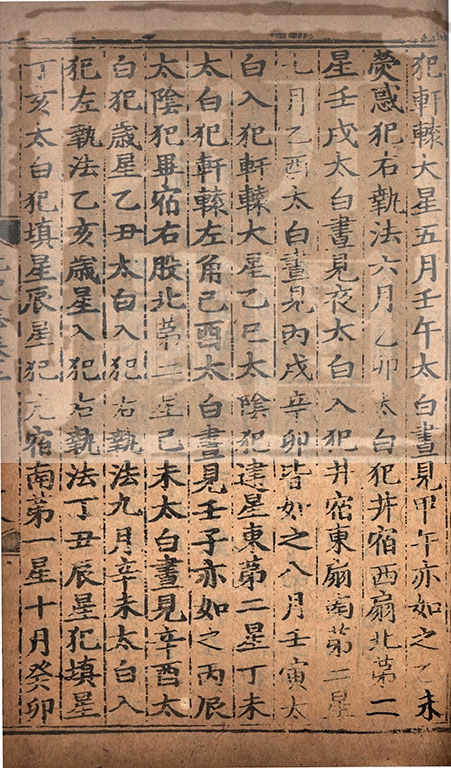 犯軒轅大星五月壬午太白晝見甲午亦如之乙未
熒惑犯右執法六月乙卯太白犯井宿西扇北第二
星壬戌太白晝見夜太白入犯井宿東扇南第二星
七月乙酉太白晝見丙戌辛卯皆如之八月壬寅太
白入犯軒轅大星乙巳太陰犯建星東第二星丁未
太白犯軒轅左角己酉太白晝見壬子亦如之丙辰
太陰犯畢宿右股北第二星己未太白晝見辛酉太
白犯歲星乙丑太白入犯右執法九月辛未太白入
犯左執法乙亥歲星入犯右執法丁丑辰星犯填星
丁亥太白犯填星辰星犯亢宿南第一星十月癸卯